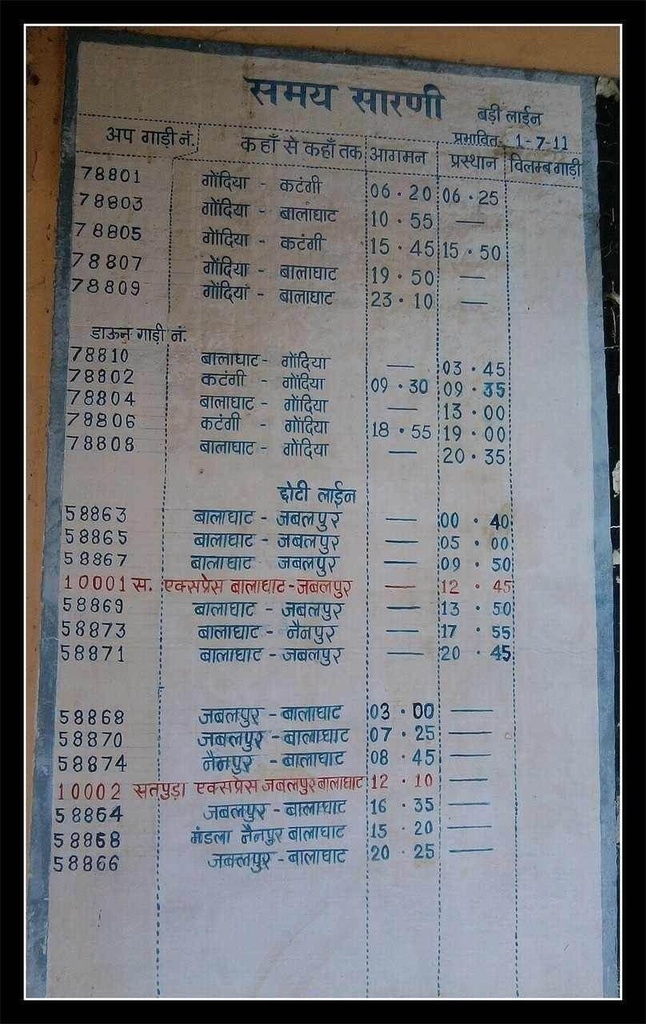 समय सारणी
बड़ी लाईन
प्रभावित 1-7-11
अप गाड़ी नं. कहाँ से कहाँ तक आगमन प्रस्थान विलम्ब गाड़ी
78801 गोंदिया - कटंगी 06.20 06.25
78803 गोंदिया - बालाघाट 10.55 —
78805 गोंदिया - कटंगी 15.45 15.50
78807 गोंदिया - बालाघाट 19.50 —
78809 गोंदिया - बालाघाट 23.10 —
डाऊन गाड़ी नं.
78810 बालाघाट - गोंदिया — 03.45
78802 कटंगी - गोंदिया 09.30 09.35
78804 बालाघाट - गोंदिया — 13.00
78806 कटंगी - गोंदिया 18.55 19.00
78808 बालाघाट - गोंदिया — 20.35
छोटी लाईन
58863 बालाघाट - जबलपुर — 00.40
58865 बालाघाट - जबलपुर — 05.00
58867 बालाघाट - जबलपुर — 09.50
10001 स. एक्सप्रेस बालाघाट-जबलपुर — 12.45
58869 बालाघाट - जबलपुर — 13.50
58873 बालाघाट - नैनपुर — 17.55
58871 बालाघाट - जबलपुर — 20.45
58868 जबलपुर - बालाघाट 03.00 —
58870 जबलपुर - बालाघाट 07.25 —
58874 नैनपुर - बालाघाट 08.45 —
10002 सतपुड़ा एक्सप्रेस जबलपुर बालाघाट 12.10 —
58864 जबलपुर - बालाघाट 16.35 —
58868 मंडला नैनपुर बालाघाट 15.20 —
58866 जबलपुर - बालाघाट 20.25 —